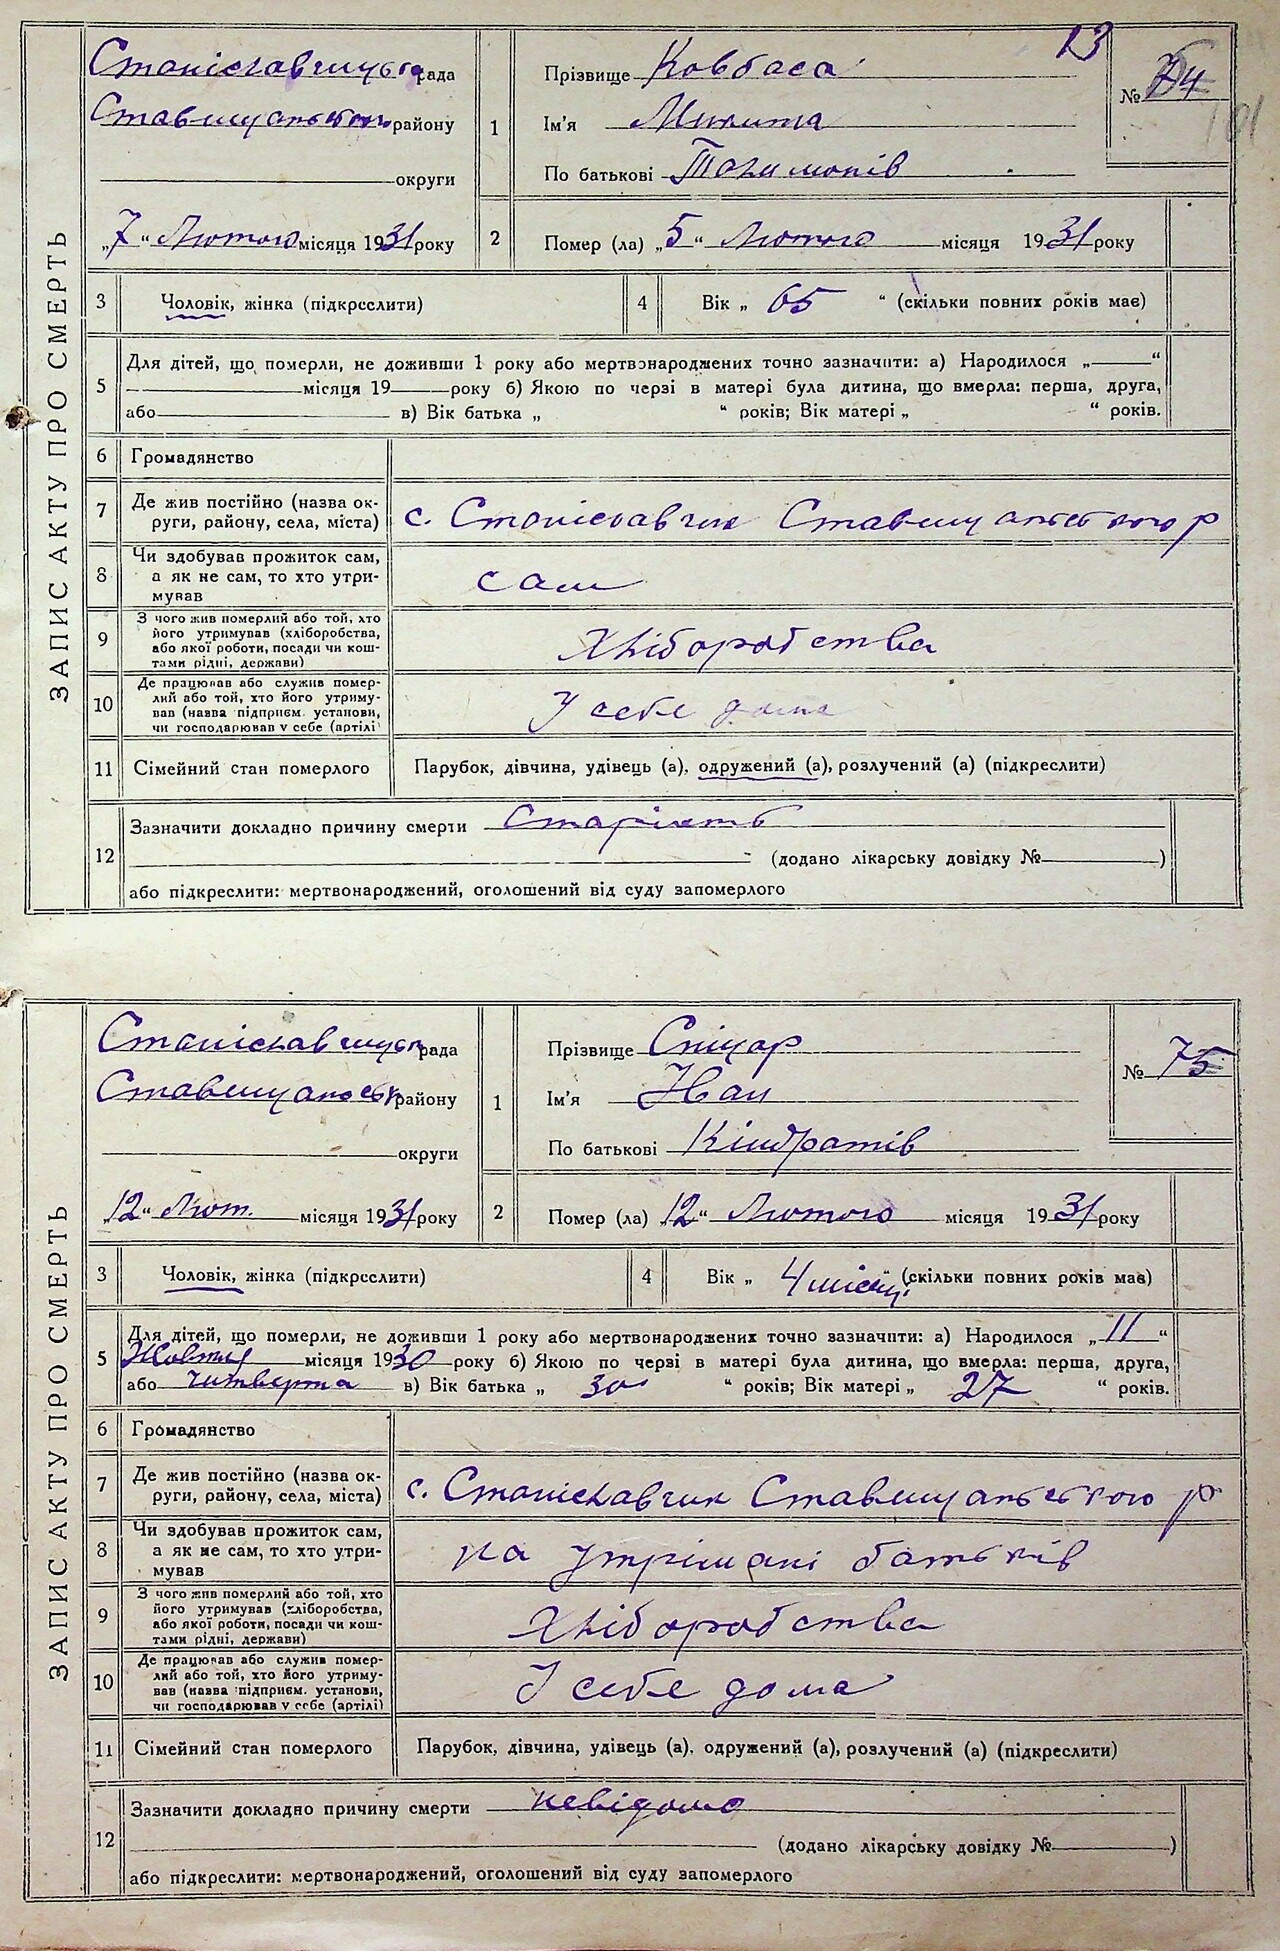 ЗАПИС АКТУ ПРО СМЕРТЬ
13
Станіславчицька рада
Ставищанського району
округи
„7“ Лютого місяця 1931 року
1
Прізвище Ковбаса
Ім'я Микита
По батькові
№ 74
101
2
Помер (ла) „5“ Лютого місяця 1931 року
3
Чоловік, жінка (підкреслити)
4
Вік „ 65 “ (скільки повних років має)
5
Для дітей, що померли, не доживши 1 року або мертвонароджених точно зазначити: а) Народилося „ “
місяця 19 року б) Якою по черзі в матері була дитина, що вмерла: перша, друга,
або в) Вік батька „ “ років; Вік матері „ “ років.
6
Громадянство
7
Де жив постійно (назва ок-
руги, району, села, міста)
с. Станіславчик Ставищанського р
8
Чи здобував прожиток сам,
а як не сам, то хто утри-
мував
сам
9
З чого жив померлий або той, хто
його утримував (хліборобства,
або якої роботи, посади чи кош-
тами рідні, держави)
Хліборобства
10
Де працював або служив помер-
лий або той, хто його утриму-
вав (назва підприєм. установи,
чи господарював у себе (артілі)
У себе дома
11
Сімейний стан померлого
Парубок, дівчина, удівець (а), одружений (а), розлучений (а) (підкреслити)
12
Зазначити докладно причину смерти Старість
(додано лікарську довідку № )
або підкреслити: мертвонароджений, оголошений від суду запомерлого
ЗАПИС АКТУ ПРО СМЕРТЬ
Станіславчицька рада
Ставищанськ району
округи
„12“ Лют. місяця 1931 року
1
Прізвище Спіцар
Ім'я Иван
По батькові Кіндратів
№ 75
2
Помер (ла) „12“ Лютого місяця 1931 року
3
Чоловік, жінка (підкреслити)
4
Вік „ 4 місяці “ (скільки повних років має)
5
Для дітей, що померли, не доживши 1 року або мертвонароджених точно зазначити: а) Народилося „11“
Жовтня місяця 1930 року б) Якою по черзі в матері була дитина, що вмерла: перша, друга,
або читверта в) Вік батька „ 30 “ років; Вік матері „ 27 “ років.
6
Громадянство
7
Де жив постійно (назва ок-
руги, району, села, міста)
с. Станіславчик Ставищанського р
8
Чи здобував прожиток сам,
а як не сам, то хто утри-
мував
на утрімані батьків
9
З чого жив померлий або той, хто
його утримував (хліборобства,
або якої роботи, посади чи кош-
тами рідні, держави)
Хліборобства
10
Де працював або служив помер-
лий або той, хто його утриму-
вав (назва підприєм. установи,
чи господарював у себе (артілі)
У себе дома
11
Сімейний стан померлого
Парубок, дівчина, удівець (а), одружений (а), розлучений (а) (підкреслити)
12
Зазначити докладно причину смерти невідомо
(додано лікарську довідку № )
або підкреслити: мертвонароджений, оголошений від суду запомерлого